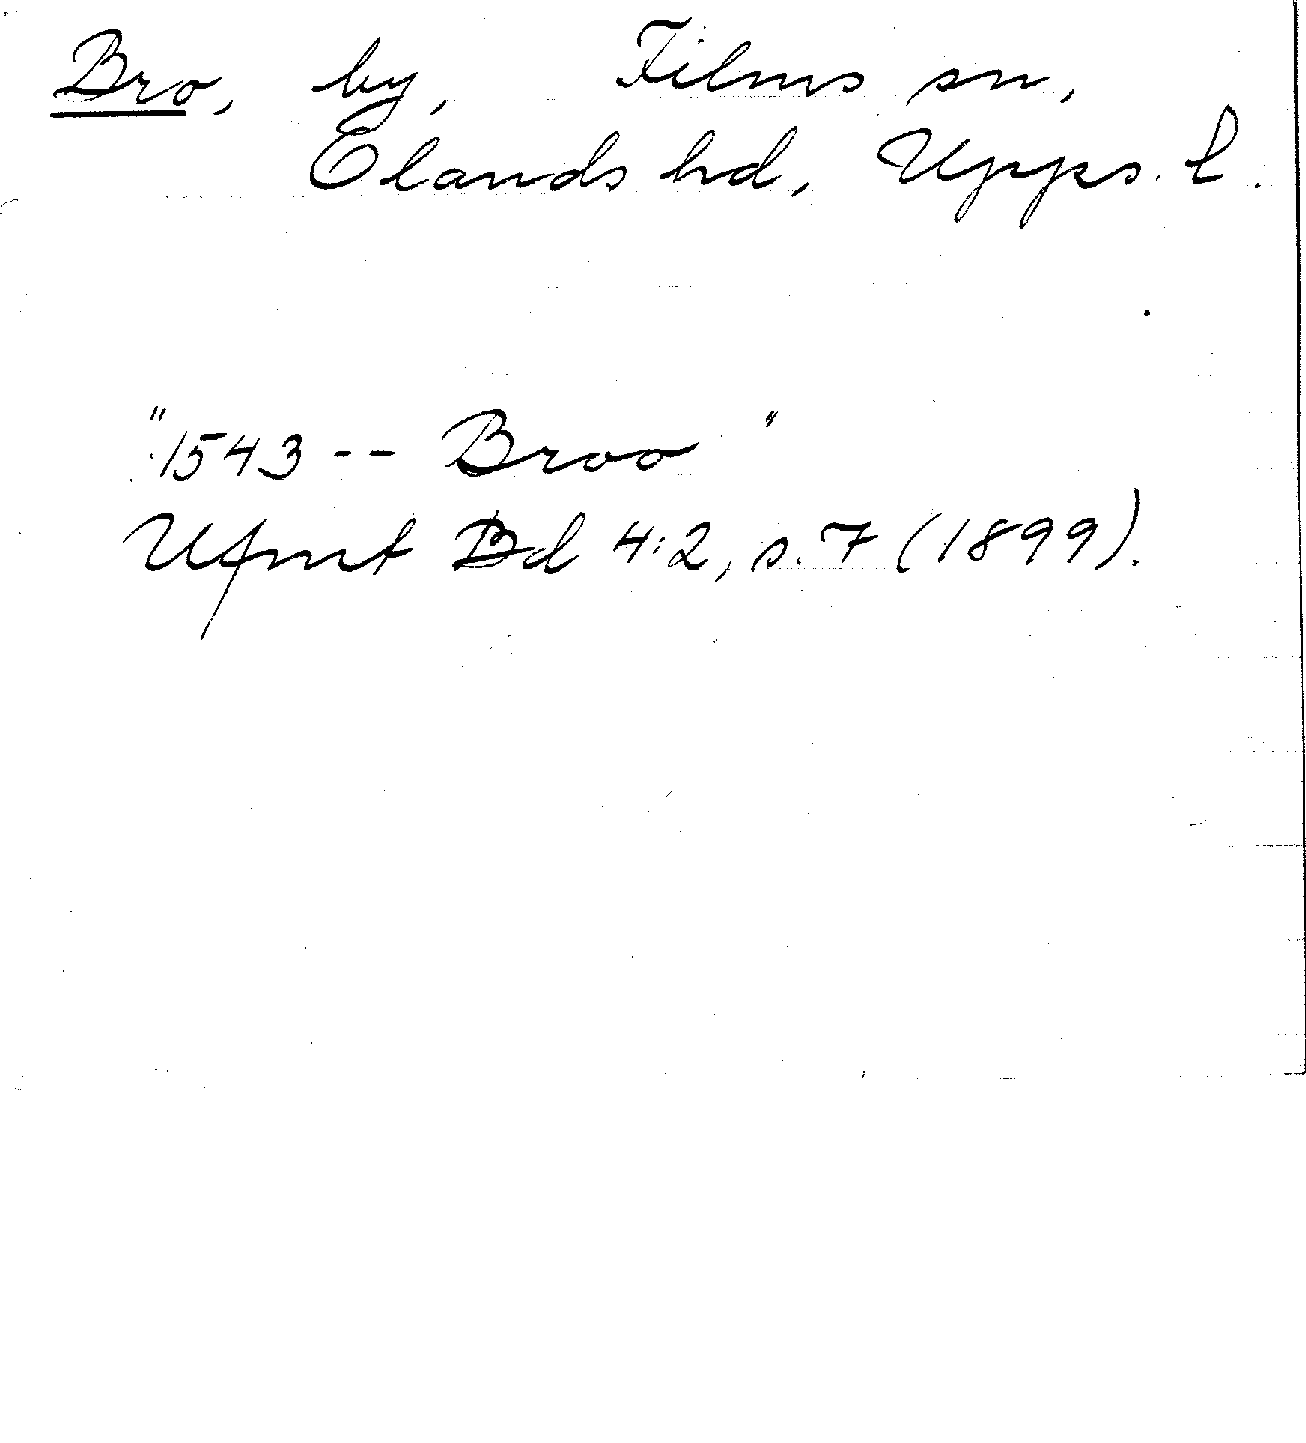 Bro, by, Films sn,
Olands hd, Upps. l.
"1543 -- Broo "
Ufmt Bd 4:2, s. 7 (1899).